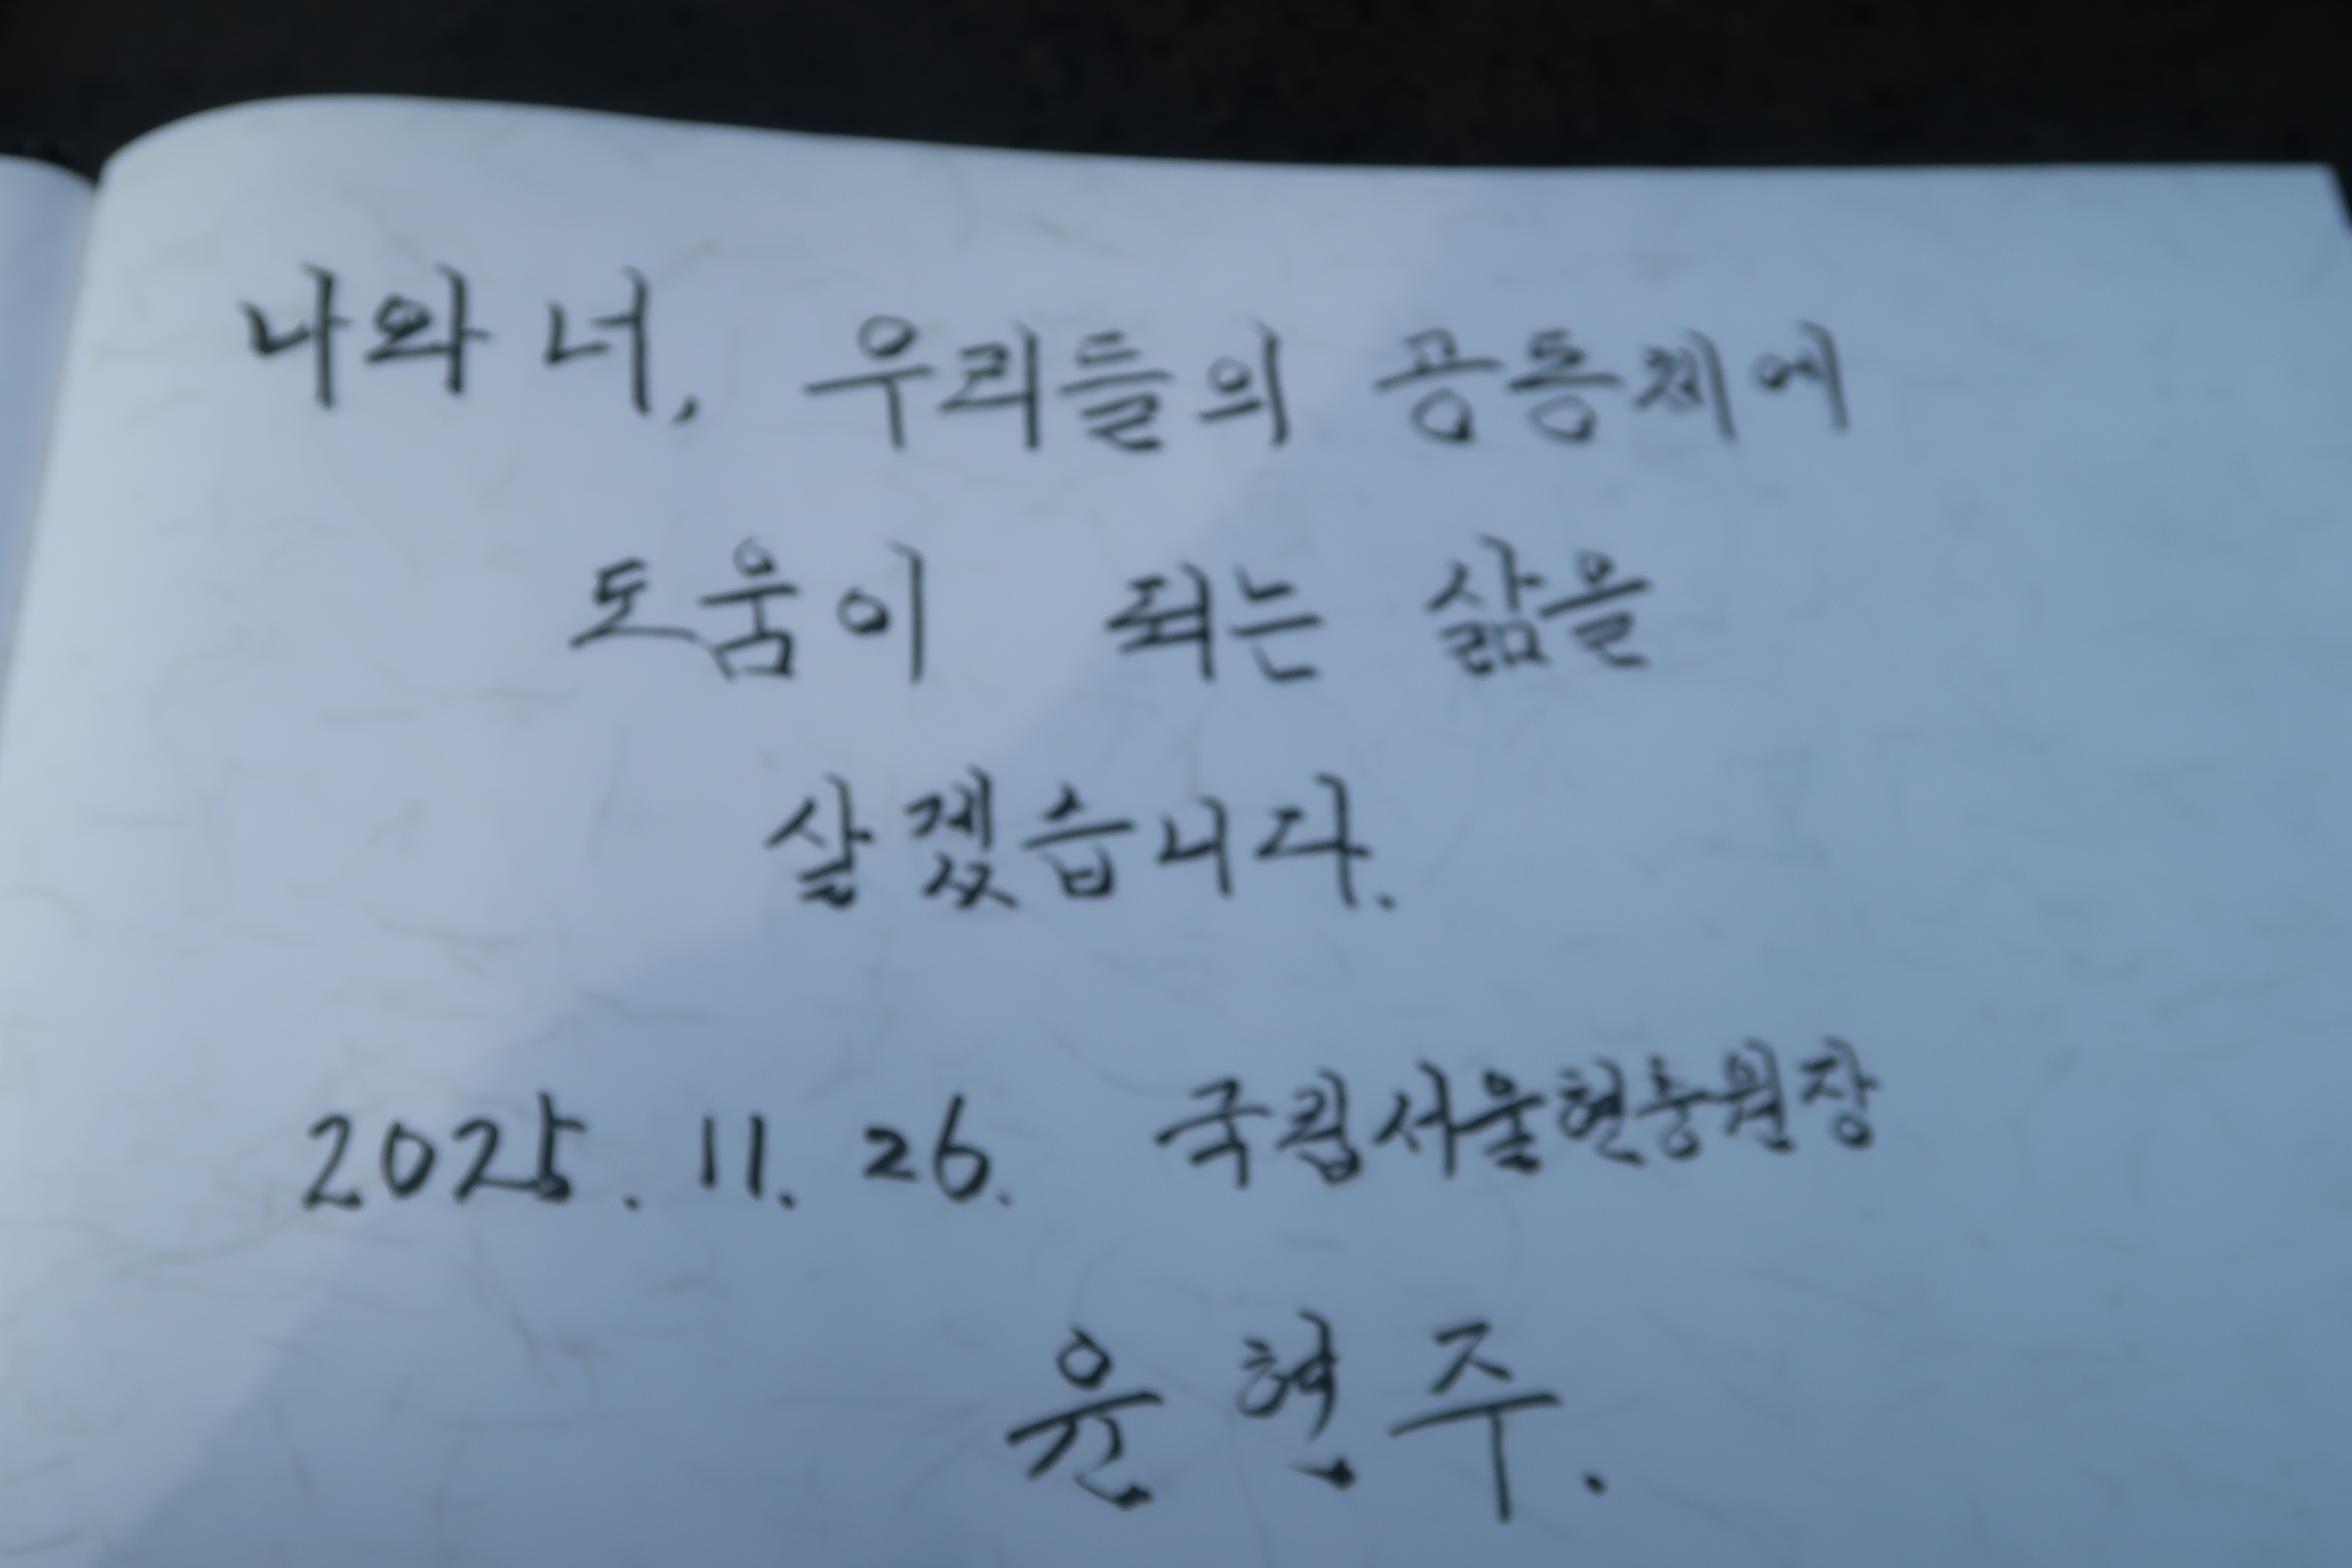 나와 너, 우리들의 공동체에
도움이 되는 삶을
살겠습니다.
2025. 11. 26. 국립서울현충원장
윤현주.